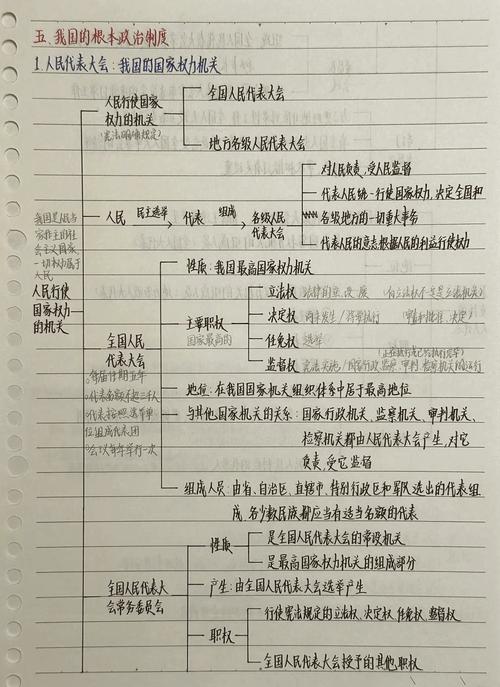 五、我国的根本政治制度
1.人民代表大会：我国的国家权力机关
人民行使国家
权力的机关
(宪法明确规定)
全国人民代表大会
地方各级人民代表大会
我国是人民当
家作主的社
会主义国家，
一切权力属于
人民
人民行使
国家权力
的机关
人民 民主选举 代表 组成 各级人民
代表大会
对人民负责，受人民监督
代表人民统一行使国家权力，决定全国和
各级地方的一切重大事务
代表人民的意志根据人民的利益行使权力
全国人民
代表大会
每届任期五年
代表名额不超三千人
代表按照选举单
位组成代表团
会议每年举行一次
性质：我国最高国家权力机关
主要职权
国家最高的
立法权
决定权
任免权 选举
监督权
地位：在我国国家机关组织体系中居于最高地位
与其他国家机关的关系：国家行政机关、监察机关、审判机关、
检察机关都由人民代表大会产生，对它
负责，受它监督
组成人员：由省、自治区、直辖市、特别行政区和军队选出的代表组
成，各少数民族都应当有适当名额的代表
全国人民代表大
会常务委员会
性质
是全国人民代表大会的常设机关
是最高国家权力机关的组成部分
产生：由全国人民代表大会选举产生
职权
行使宪法规定的立法权、决定权、任免权、监督权
全国人民代表大会授予的其他职权